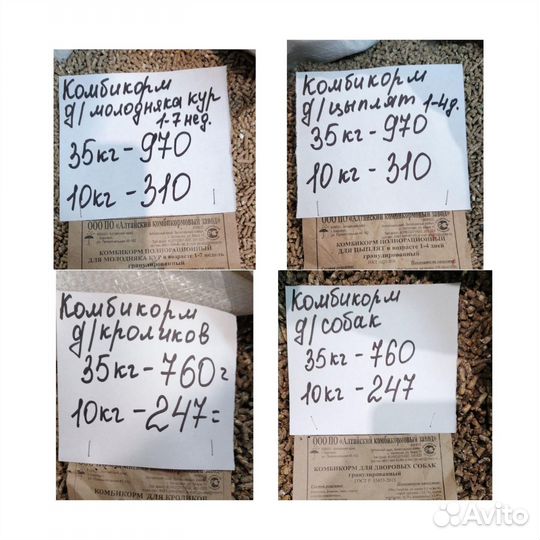 Комбикорм
д/молодняка кур
1-7 нед.
35кг-970
10кг-310
ООО ПО «Алтайский комбикормовый завод»
КОМБИКОРМ ПОЛНОРАЦИОННЫЙ
ДЛЯ МОЛОДНЯКА КУР в возрасте 1-7 недель
гранулированный
Комбикорм
д/цыплят 1-4д.
35кг-970
10кг-310
ООО ПО «Алтайский комбикормовый завод»
КОМБИКОРМ ПОЛНОРАЦИОННЫЙ
ДЛЯ ЦЫПЛЯТ в возрасте 1-4 дней
гранулированный
Комбикорм
д/кроликов
35кг-760=
10кг-247=
КОМБИКОРМ ДЛЯ КРОЛИКОВ
Комбикорм
д/собак
35кг-760
10кг-247
ООО ПО «Алтайский комбикормовый завод»
КОМБИКОРМ ДЛЯ ДВОРОВЫХ СОБАК
гранулированный
Avito